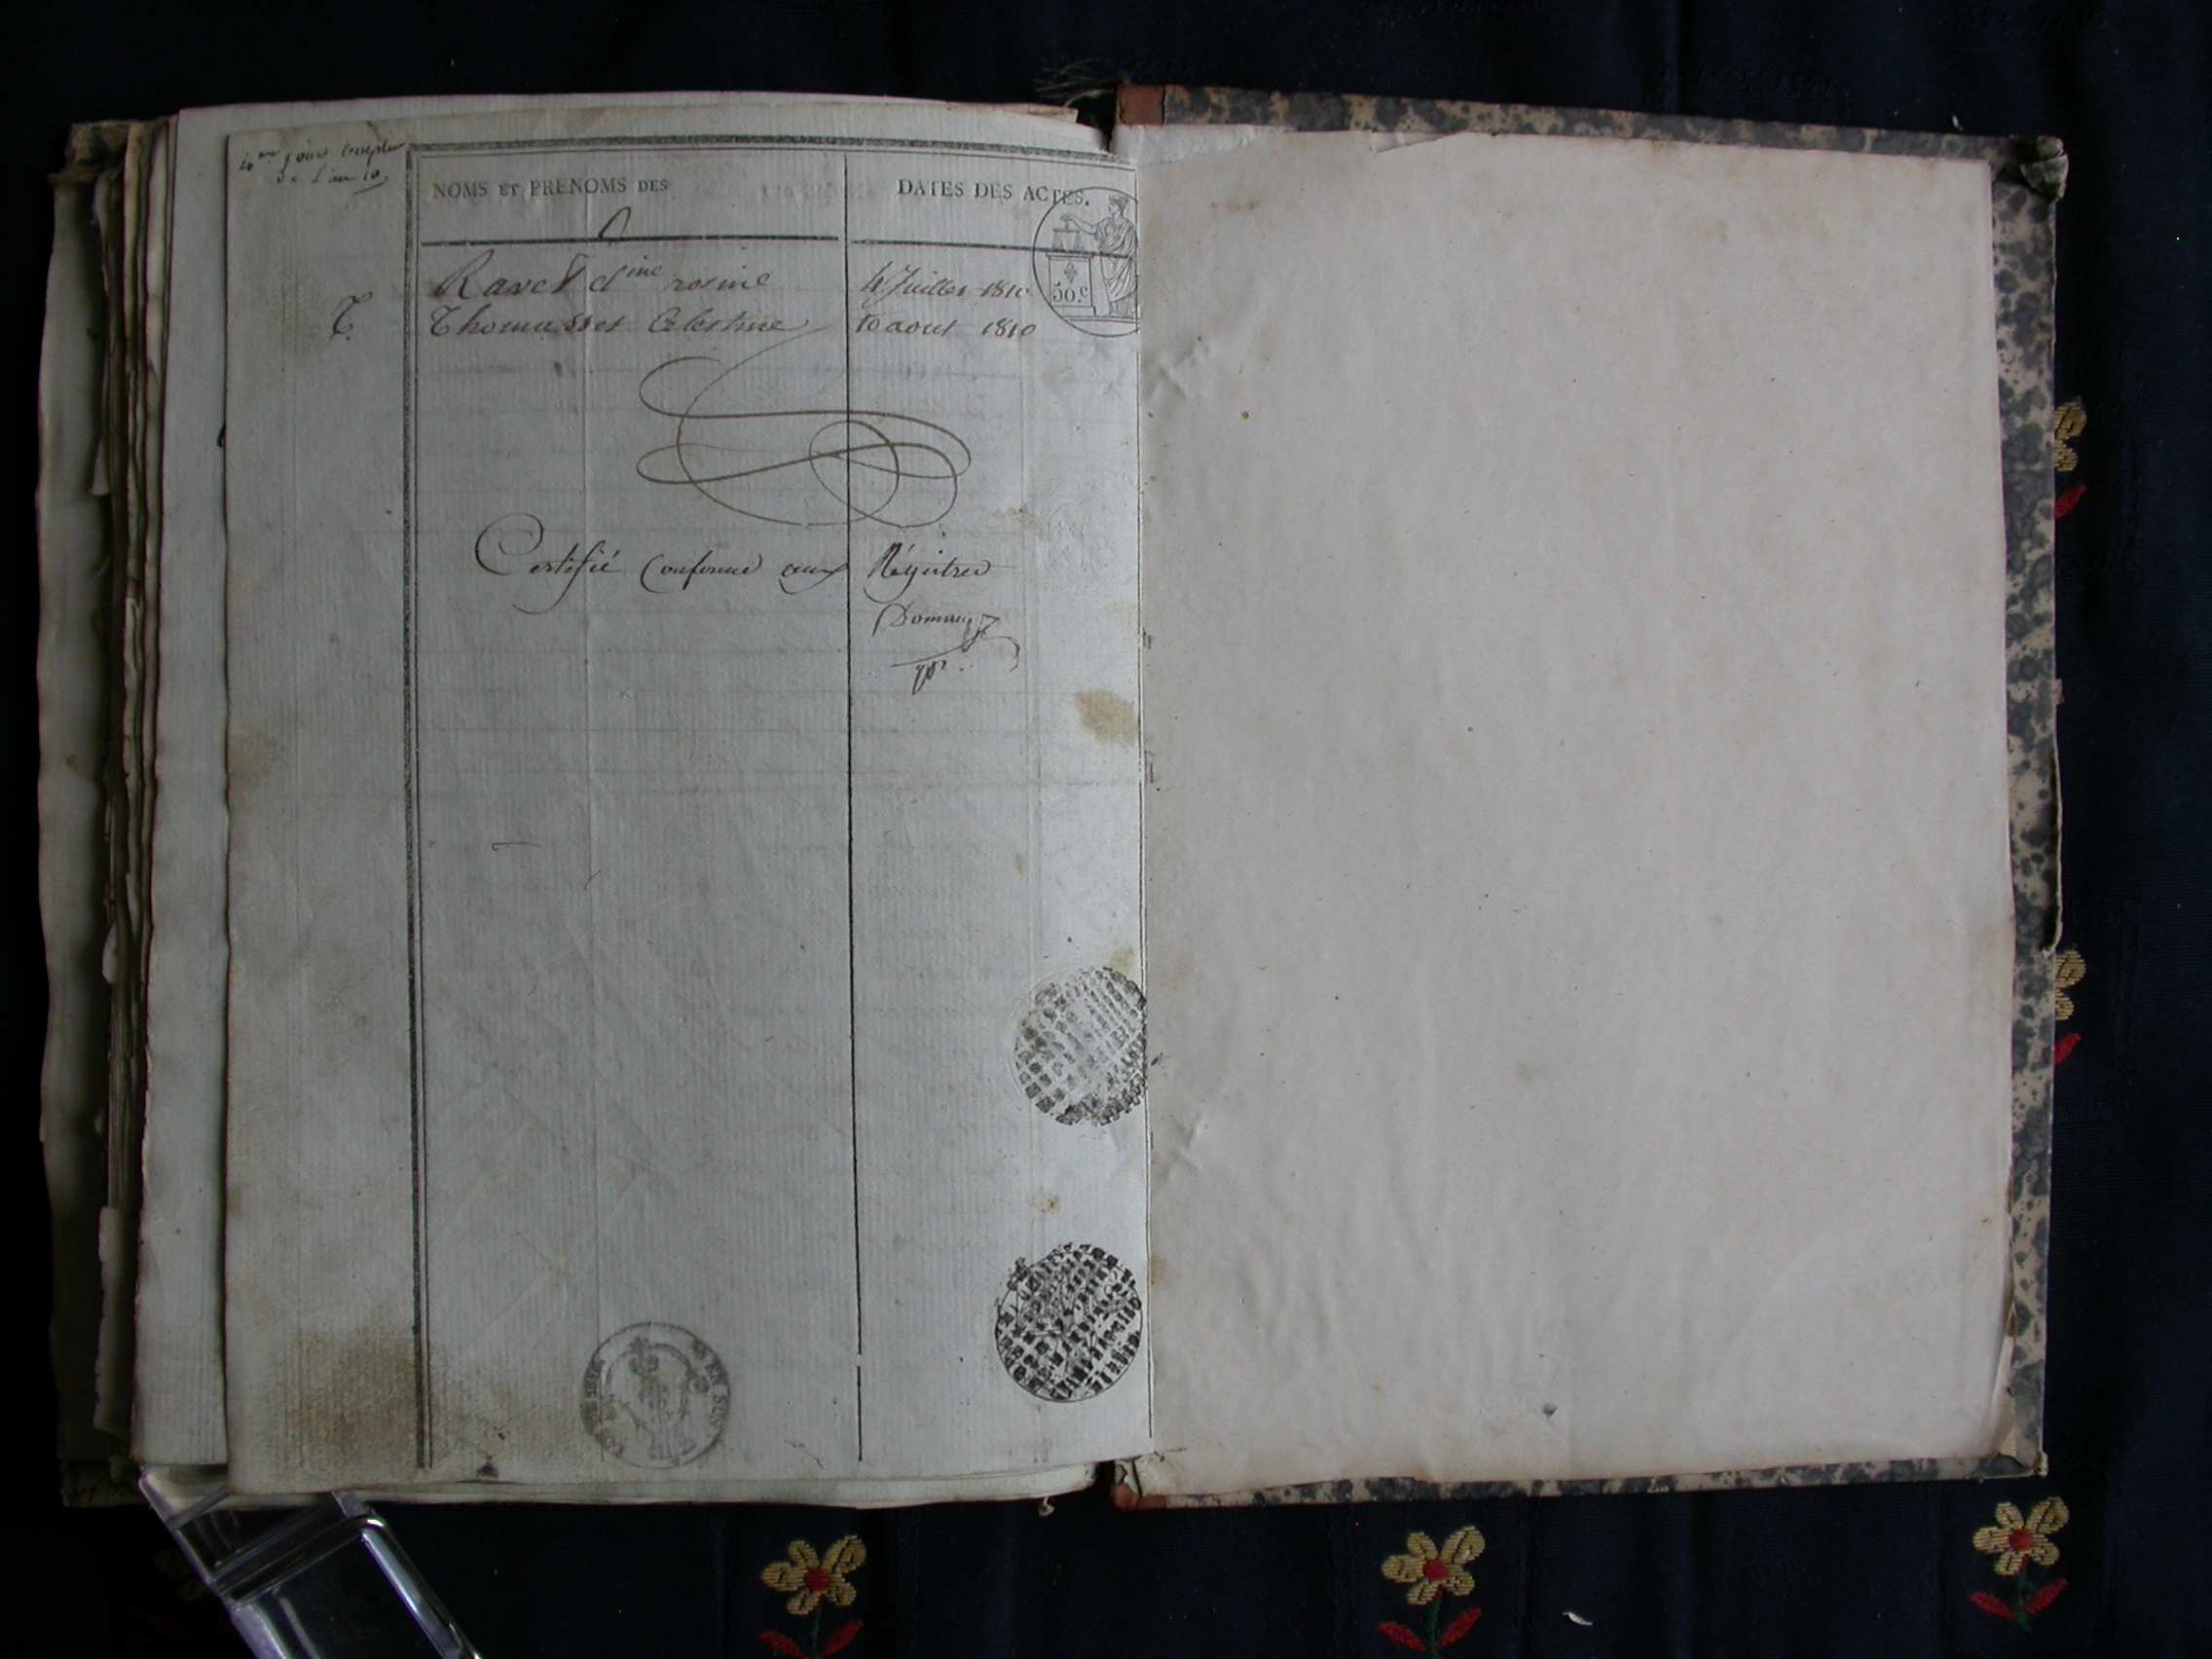 4me jour Complre
de l'an 10
NOMS ET PRENOMS DES
DATES DES ACTES.
50.c
Ravet rosine 4 Juillet 1810
T. Thomasset Celestine 10 aout 1810
Certifié Conforme aux Régistres